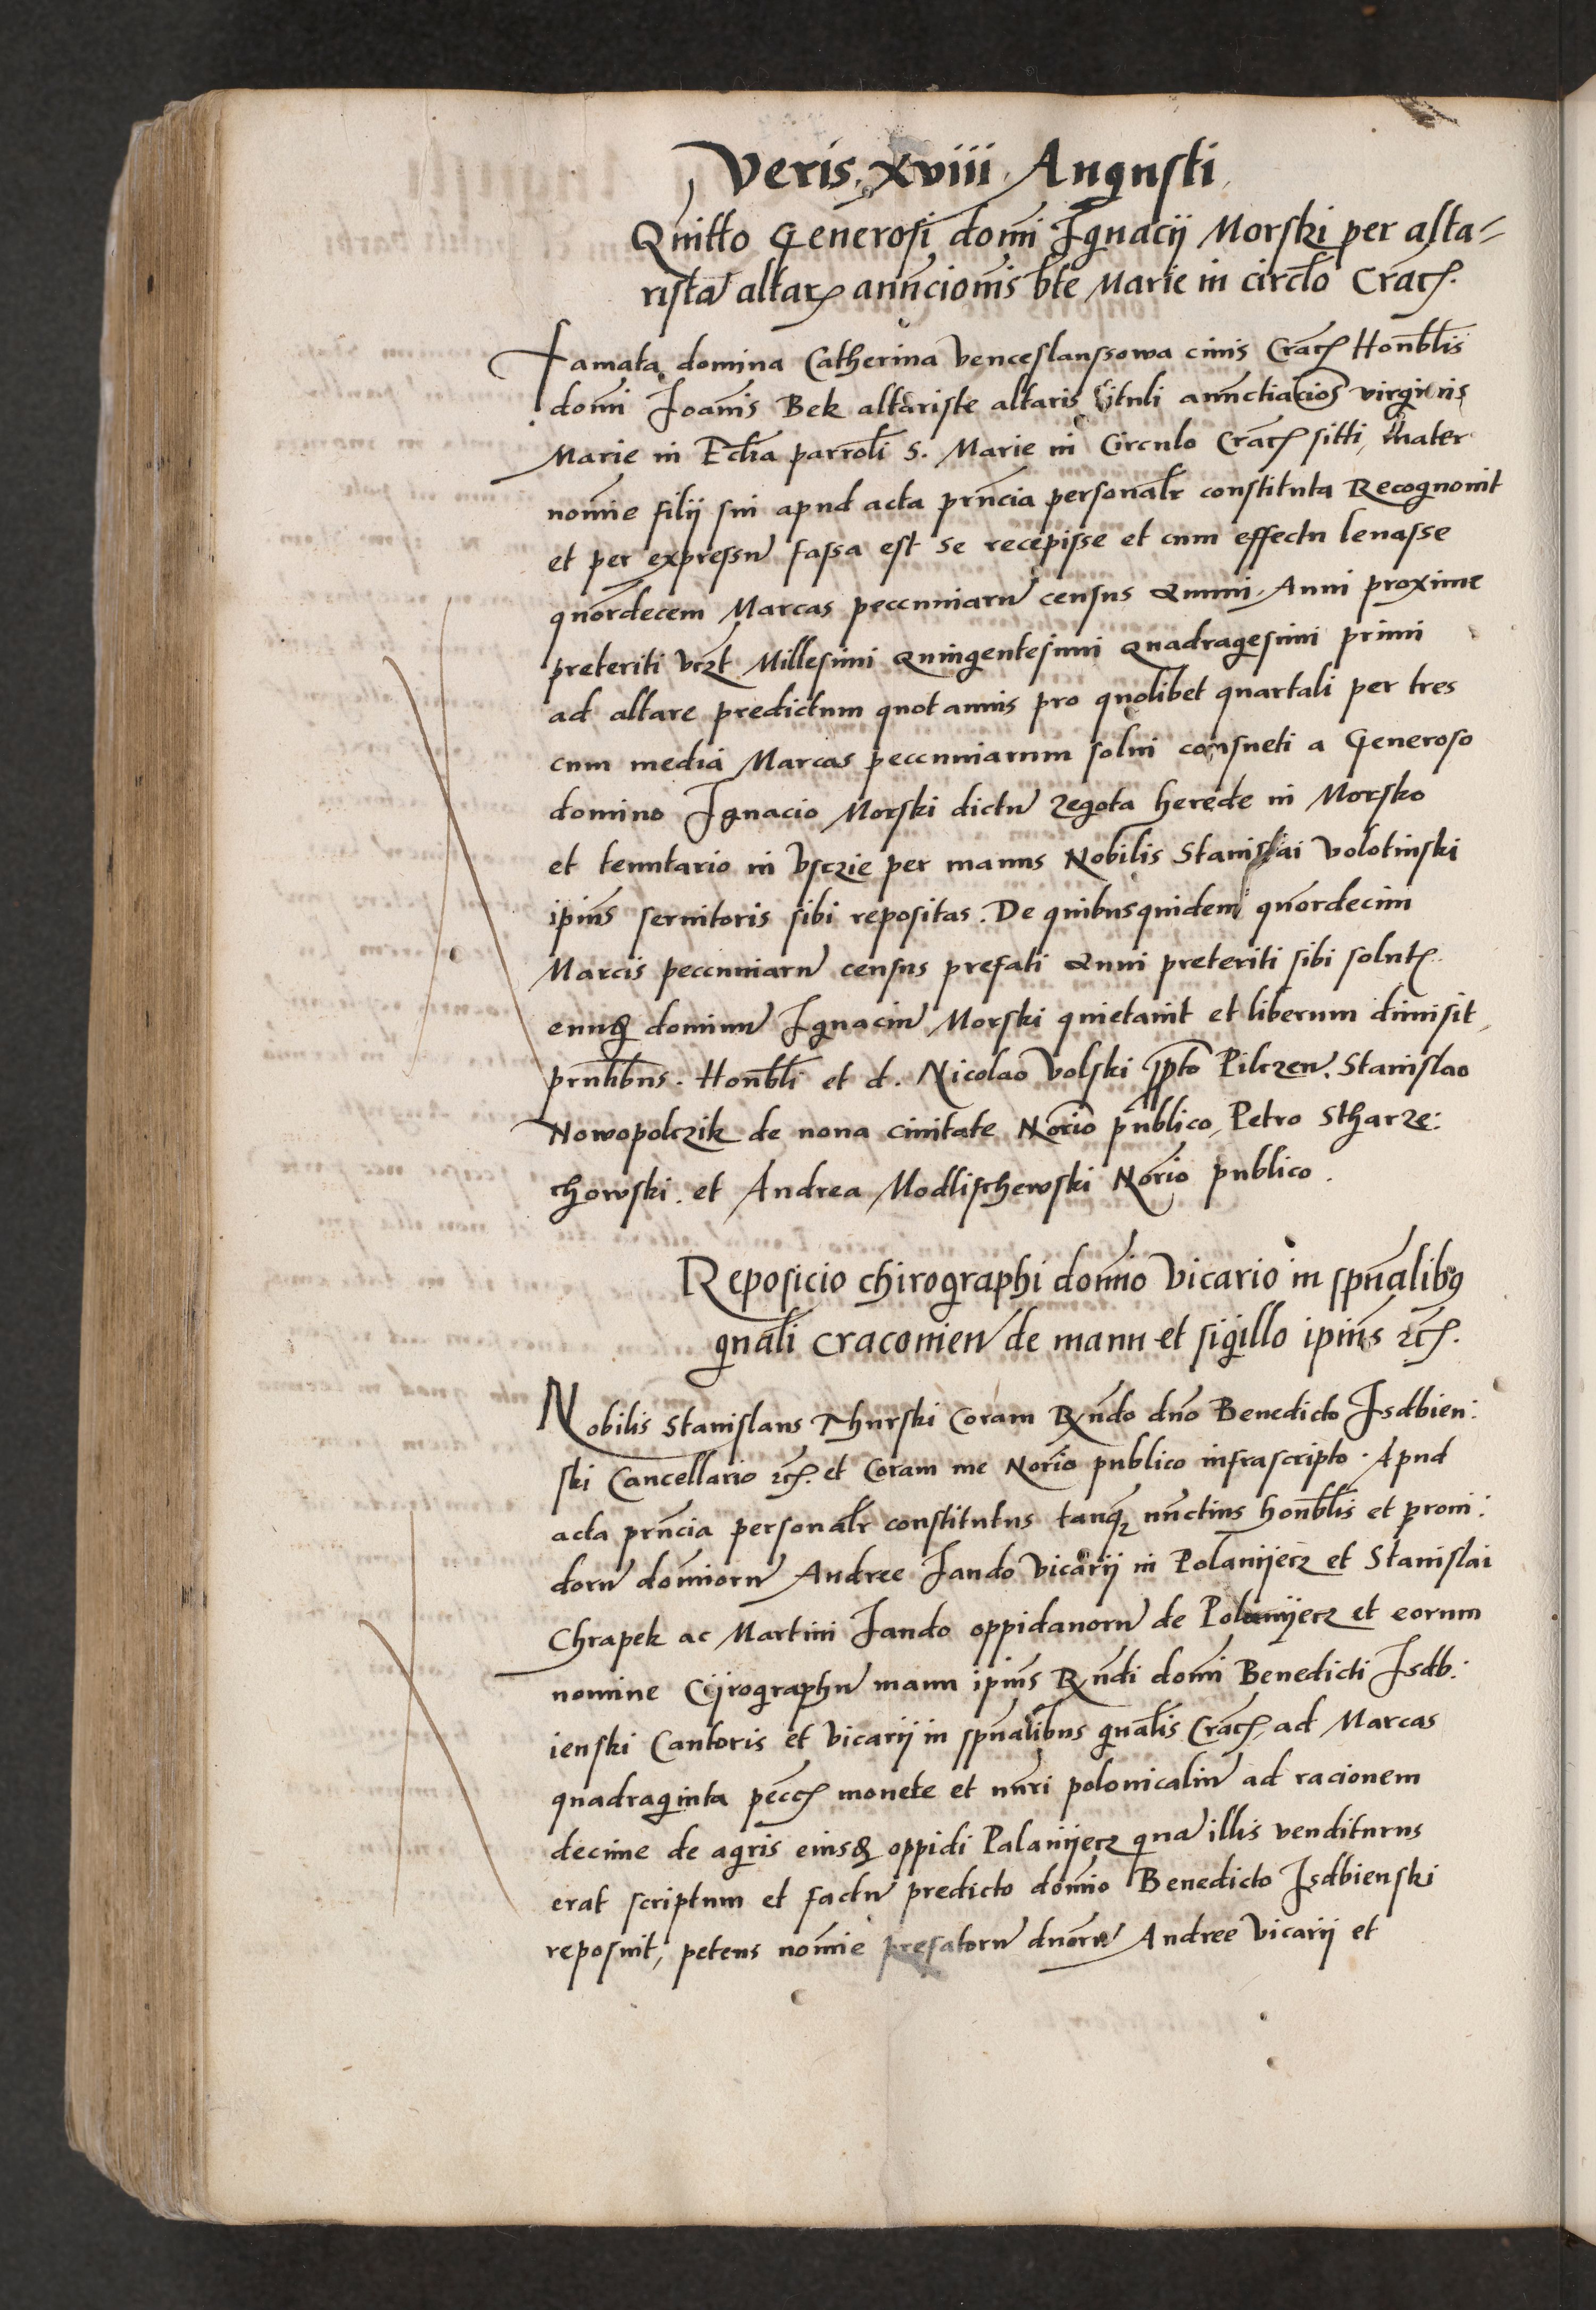 Veris. xviii. Augusti
Quitto Generosi domi Ignacij Morski per alta-
ristā altarꝭ annūcionis bte Marie in circlo Cracꝭ.
Famata domina Catherina venceslaussowa civis Cracꝭ Honblis
domi Joanīs Bek altariste altaris tituli annūctiacīos virginis
Marie in Eclia parrolī S. Marie in Circulo Cracꝭ sitti, mater
nomīe filij sui apud acta prn̄cia personalr constituta Recognovit
et per expressū fassa est se recepisse et cum effectu levasse
quordecem Marcas peccuniarū census Annui. Anni proxime
preteriti vczt Millesimi Quingentesimi Quadragesimi primi
ad altare predictum quot annis pro quolibet quartali per tres
cum media Marcas peccuniarum solui consueti a Generoso
domino Ignacio Morski dictū zegota herede in Morsko
et tenutario in vsczie per manus Nobilis Stanislai volotinski
ipīus seruitoris sibi repositas. De quibusquidem quordecim
Marcis peccuniarū census prefati Anni preteriti sibi solutꝭ.
eundꝫ dominū Ignaciū Morski quietauit et liberum dimisit,
prn̄tibus. Honbli et d. Nicolao Volski ppto Pilczen. Stanislao
Nowopolczik de noua ciuitate Norio publico, Petro Stharze:
chowski. et Andrea Modlischewski Norio publico.
Reposicio chirographi domīo Vicario in spūalibꝯ
gnāli Cracouien̄ de manu et sigillo ipīus ꝛcꝭ.
Nobilis Stanislaus Thurski Coram Rn̄do dno Benedicto Isdbien:
ski Cancellario ꝛcꝭ. et Coram me Norio publico infrascripto. Apud
acta prn̄cia personalr constitutus tanqꝫ nūnctius honblis et proui:
dorū domīorū Andree Jando Vicarij in Polanijecz et Stanislai
Chrapek ac Martini Jando oppidanorū de Polanijecz et eorum
nomine Cijrographū manu ipīus Rn̄di domi Benedicti Isdb:
ienski Cantoris et vicarij in spūalibus gnālis Cracꝭ, ad Marcas
quadraginta pecꝭ monete et nūeri polonicaliū ad racionem
decime de agris eiusdꝫ oppidi Palanijecz quā illis venditurus
erat scriptum et factū predicto domīo Benedicto Isdbienski
reposuit, petens nomīe prefatorū dnorū Andree Vicarij et